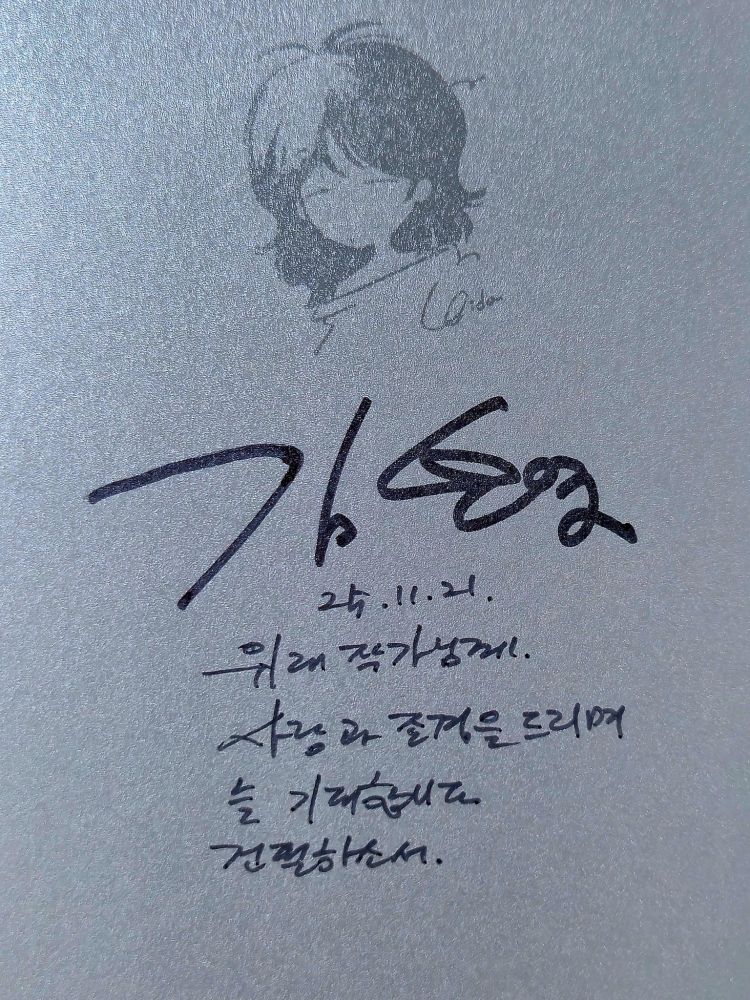 김
25.11.21.
위래 작가님께.
사랑과 존경을 드리며
늘 기대합니다
건필하소서.